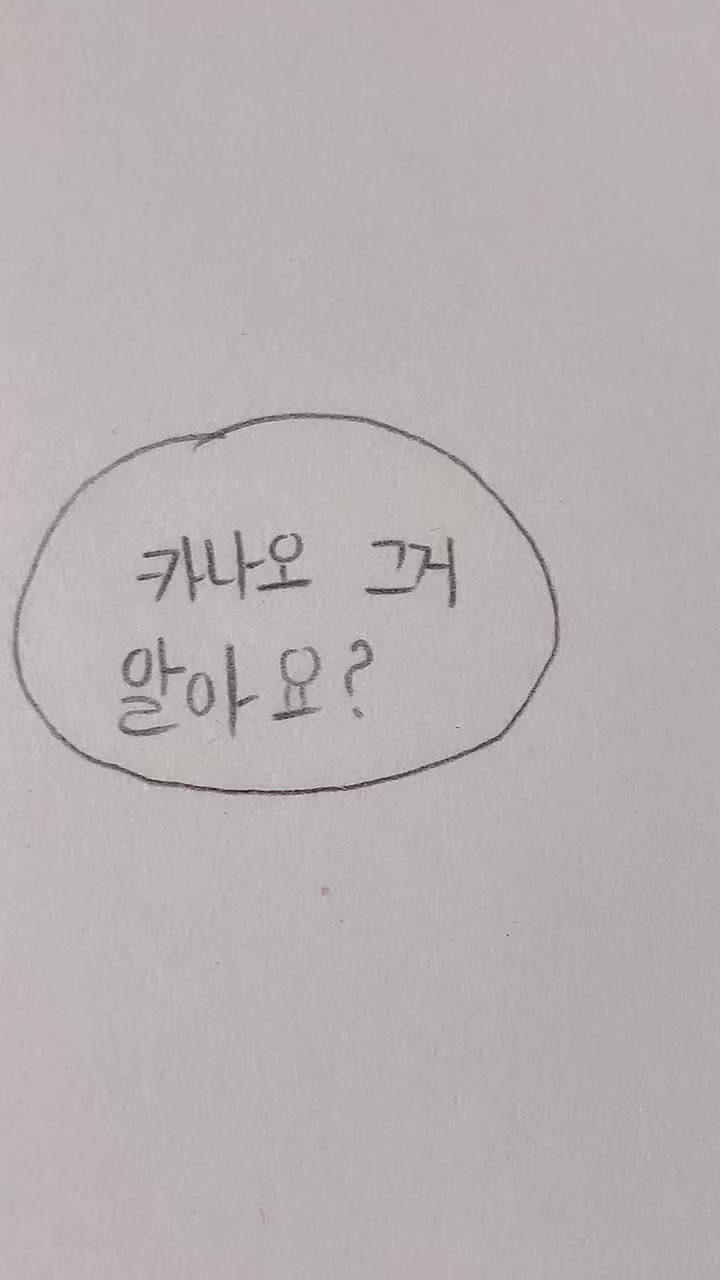 카나오 그거
알아요?